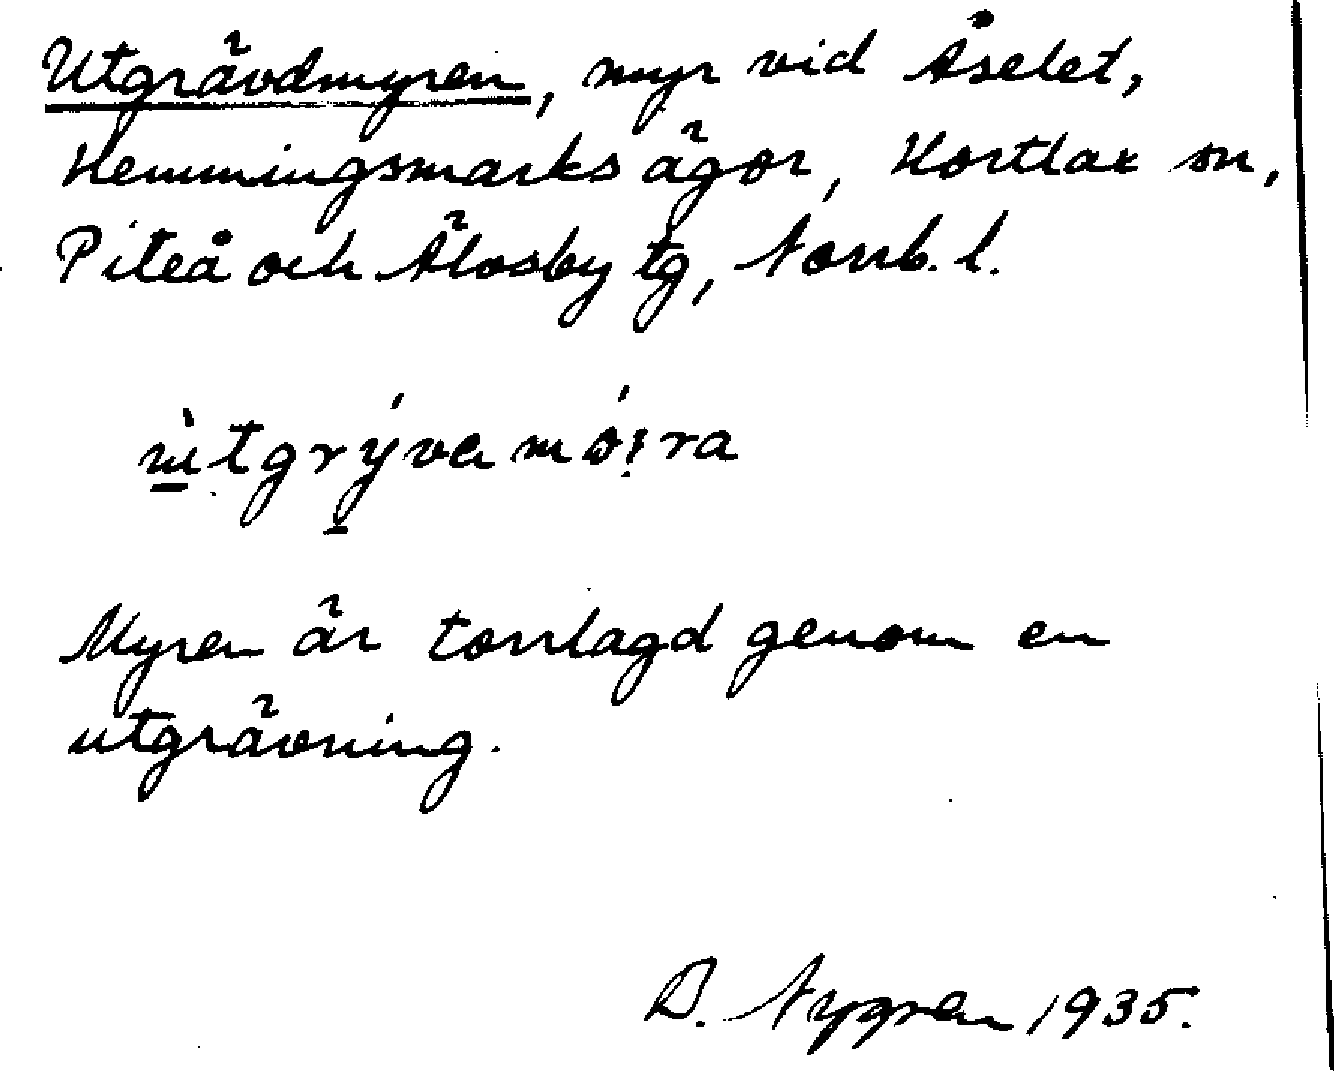 Utgrävdmyren, myr vid Åselet,
Hemmingsmarks ägor, Hortlax sn,
Piteå och Älvsby tg, Norrb. l.
Myren är torrlagd genom en
utgrävning.
D. Nygren 1935.